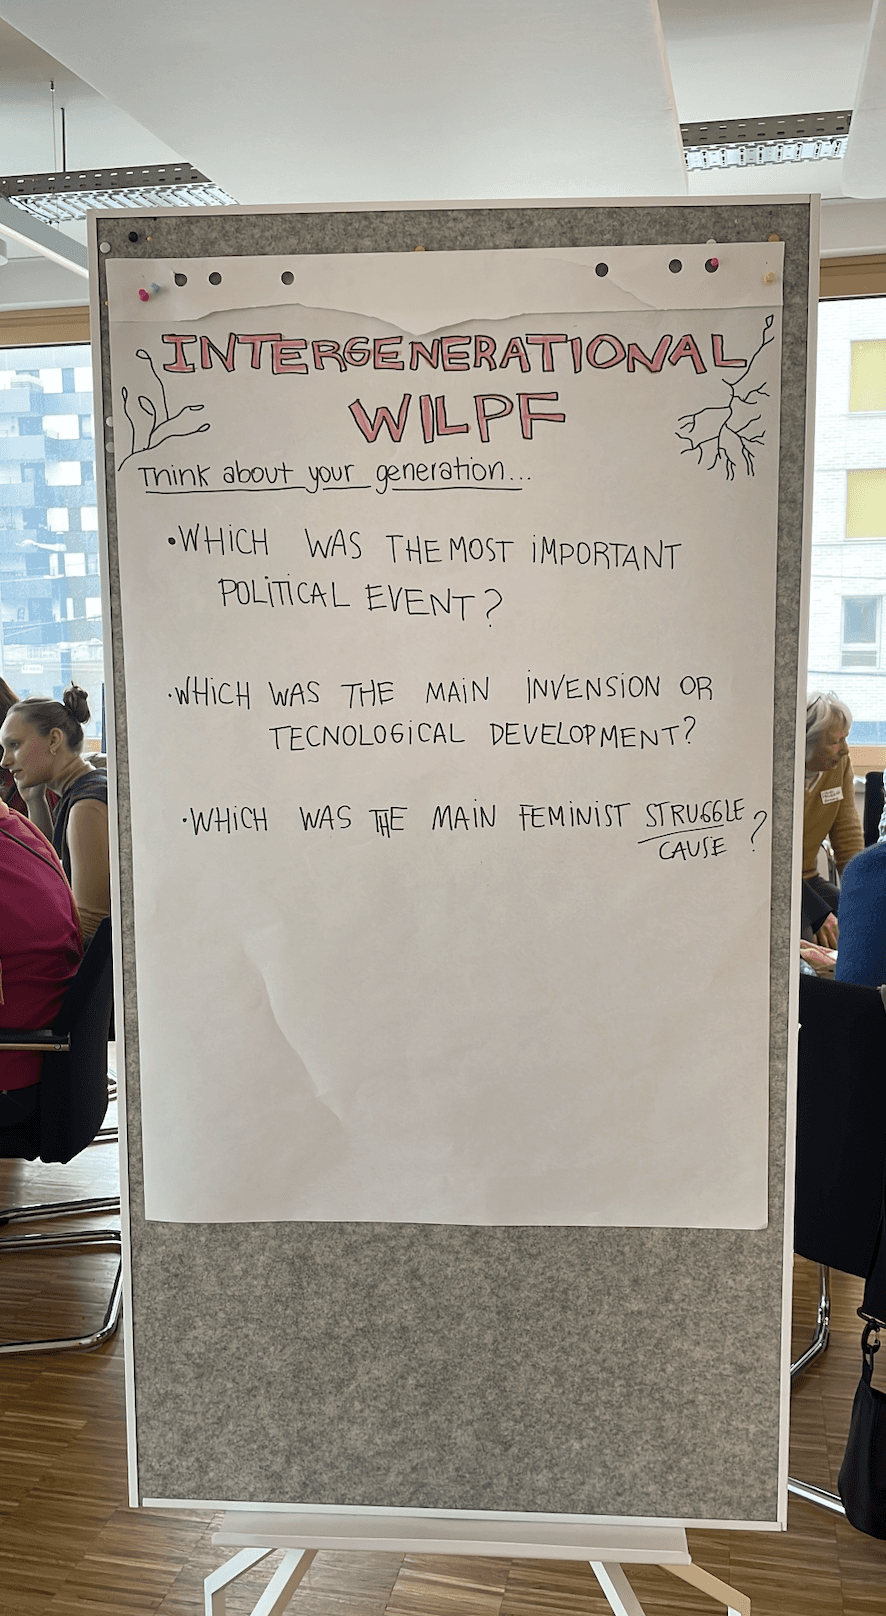 INTERGENERATIONAL
WILPF
Think about your generation...
•WHiCH WAS THE MOST iMPORTANT
POLiTiCAL EVENT?
·WHiCH WAS THE MAiN iNVENSiON OR
TECNOLOGiCAL DEVELOPMENT?
·WHiCH WAS THE MAiN FEMiNiST STRUGGLE
CAUSE ?